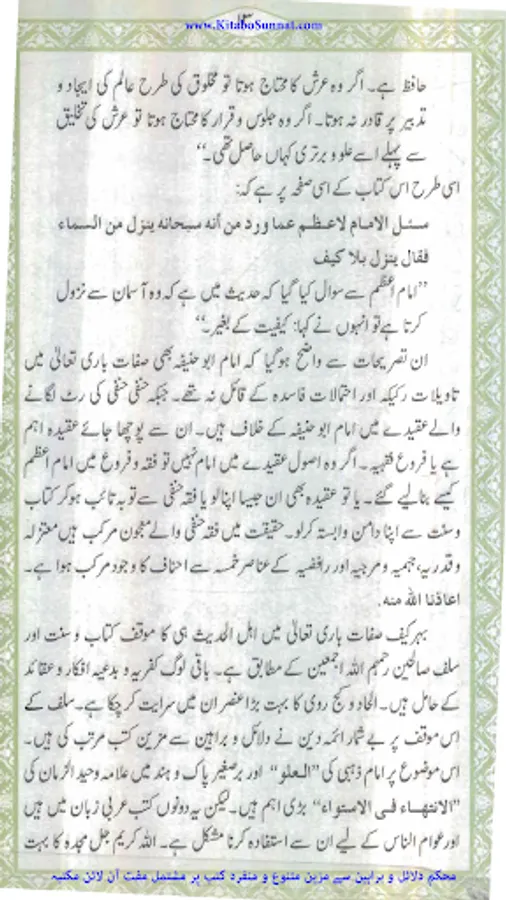 www.KitaboSunnat.com
حافظ ہے۔ اگر وہ عرش کا محتاج ہوتا تو مخلوق کی طرح عالم کی ایجاد و
تدبیر پر قادر نہ ہوتا۔ اگر وہ جلوس و قرار کا محتاج ہوتا تو عرش کی تخلیق
سے پہلے اسے علو و برتری کہاں حاصل تھی۔‘‘
اسی طرح اس کتاب کے اسی صفحہ پر ہے کہ:
سئل الامام لاعظم عما ورد من أنه سبحانه ينزل من السماء
فقال ينزل بلا كيف
’’امام اعظم سے سوال کیا گیا کہ حدیث میں ہے کہ وہ آسمان سے نزول
کرتا ہے تو انہوں نے کہا: کیفیت کے بغیر۔‘‘
ان تصریحات سے واضح ہو گیا کہ امام ابو حنیفہ بھی صفات باری تعالیٰ میں
تاویلات رکیکہ اور احتمالات فاسدہ کے قائل نہ تھے۔ جبکہ حنفی حنفی کی رٹ لگانے
والے عقیدے میں امام ابو حنیفہ کے خلاف ہیں۔ ان سے پوچھا جائے عقیدہ اہم
ہے یا فروع فقہیہ۔ اگر وہ اصول عقیدے میں امام نہیں تو فقہ و فروع میں امام اعظم
کیسے بنا لیے گئے۔ یا تو عقیدہ بھی ان جیسا اپنا لو یا فقہ حنفی سے توبہ تائب ہو کر کتاب
و سنت سے اپنا دامن وابستہ کر لو۔ حقیقت میں فقہ حنفی والے معجون مرکب ہیں معتزلہ
و قدریہ، جہمیہ و مرجیہ اور رافضیہ کے عناصر خمسہ سے احناف کا وجود مرکب ہوا ہے۔
اعاذنا الله منه.
بہر کیف صفات باری تعالیٰ میں اہل الحدیث ہی کا موقف کتاب و سنت اور
سلف صالحین رحمہم اللہ اجمعین کے مطابق ہے۔ باقی لوگ کفریہ و بدعیہ افکار و عقائد
کے حامل ہیں۔ الحاد و کج روی کا بہت بڑا عنصر ان میں سرایت کر چکا ہے۔ سلف کے
اس موقف پر بے شمار ائمہ دین نے دلائل و براہین سے مزین کتب مرتب کی ہیں۔
اس موضوع پر امام ذہبی کی ’’العلو‘‘ اور برصغیر پاک و ہند میں علامہ وحید الزمان کی
’’الانتهاء فی الاستواء‘‘ بڑی اہم ہیں۔ لیکن یہ دونوں کتب عربی زبان میں ہیں
اور عوام الناس کے لیے ان سے استفادہ کرنا مشکل ہے۔ اللہ کریم جل مجدہ کا بہت
محکم دلائل و براہین سے مزین متنوع و منفرد کتب پر مشتمل مفت آن لائن مکتبہ